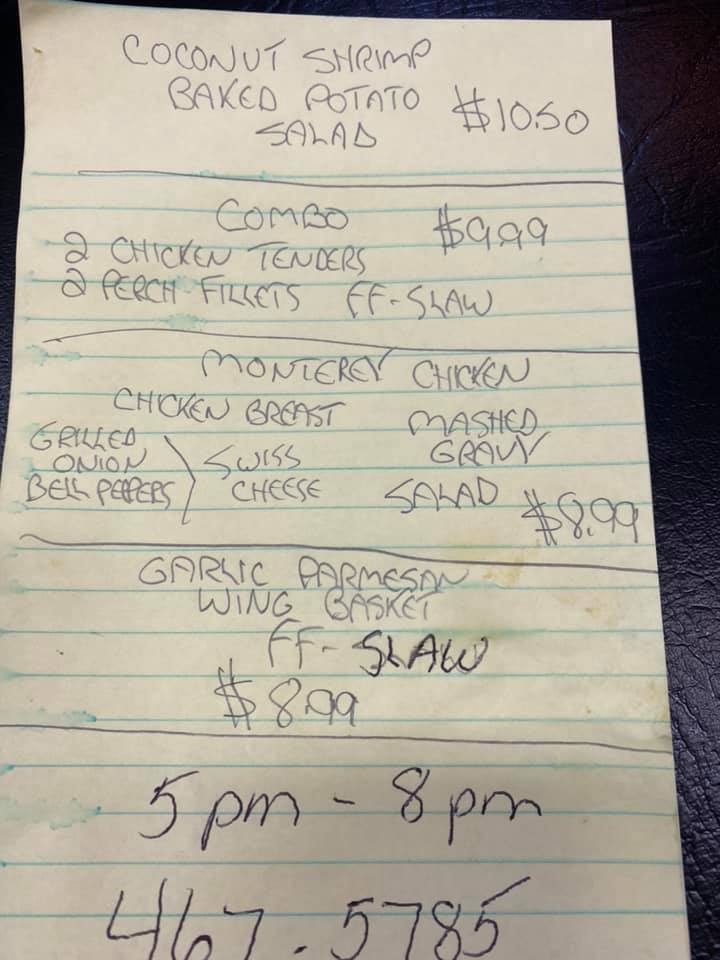 COCONUT SHRIMP
BAKED POTATO $10.50
SALAD
COMBO $9.99
2 CHICKEN TENDERS
2 PERCH FILLETS FF-SLAW
MONTEREY CHICKEN
CHICKEN BREAST MASHED
GRILLED GRAVY
ONION SWISS
BELL PEPPERS CHEESE SALAD $8.99
GARLIC PARMESAN
WING BASKET
FF-SLAW
$8.99
5pm - 8pm
467.5785